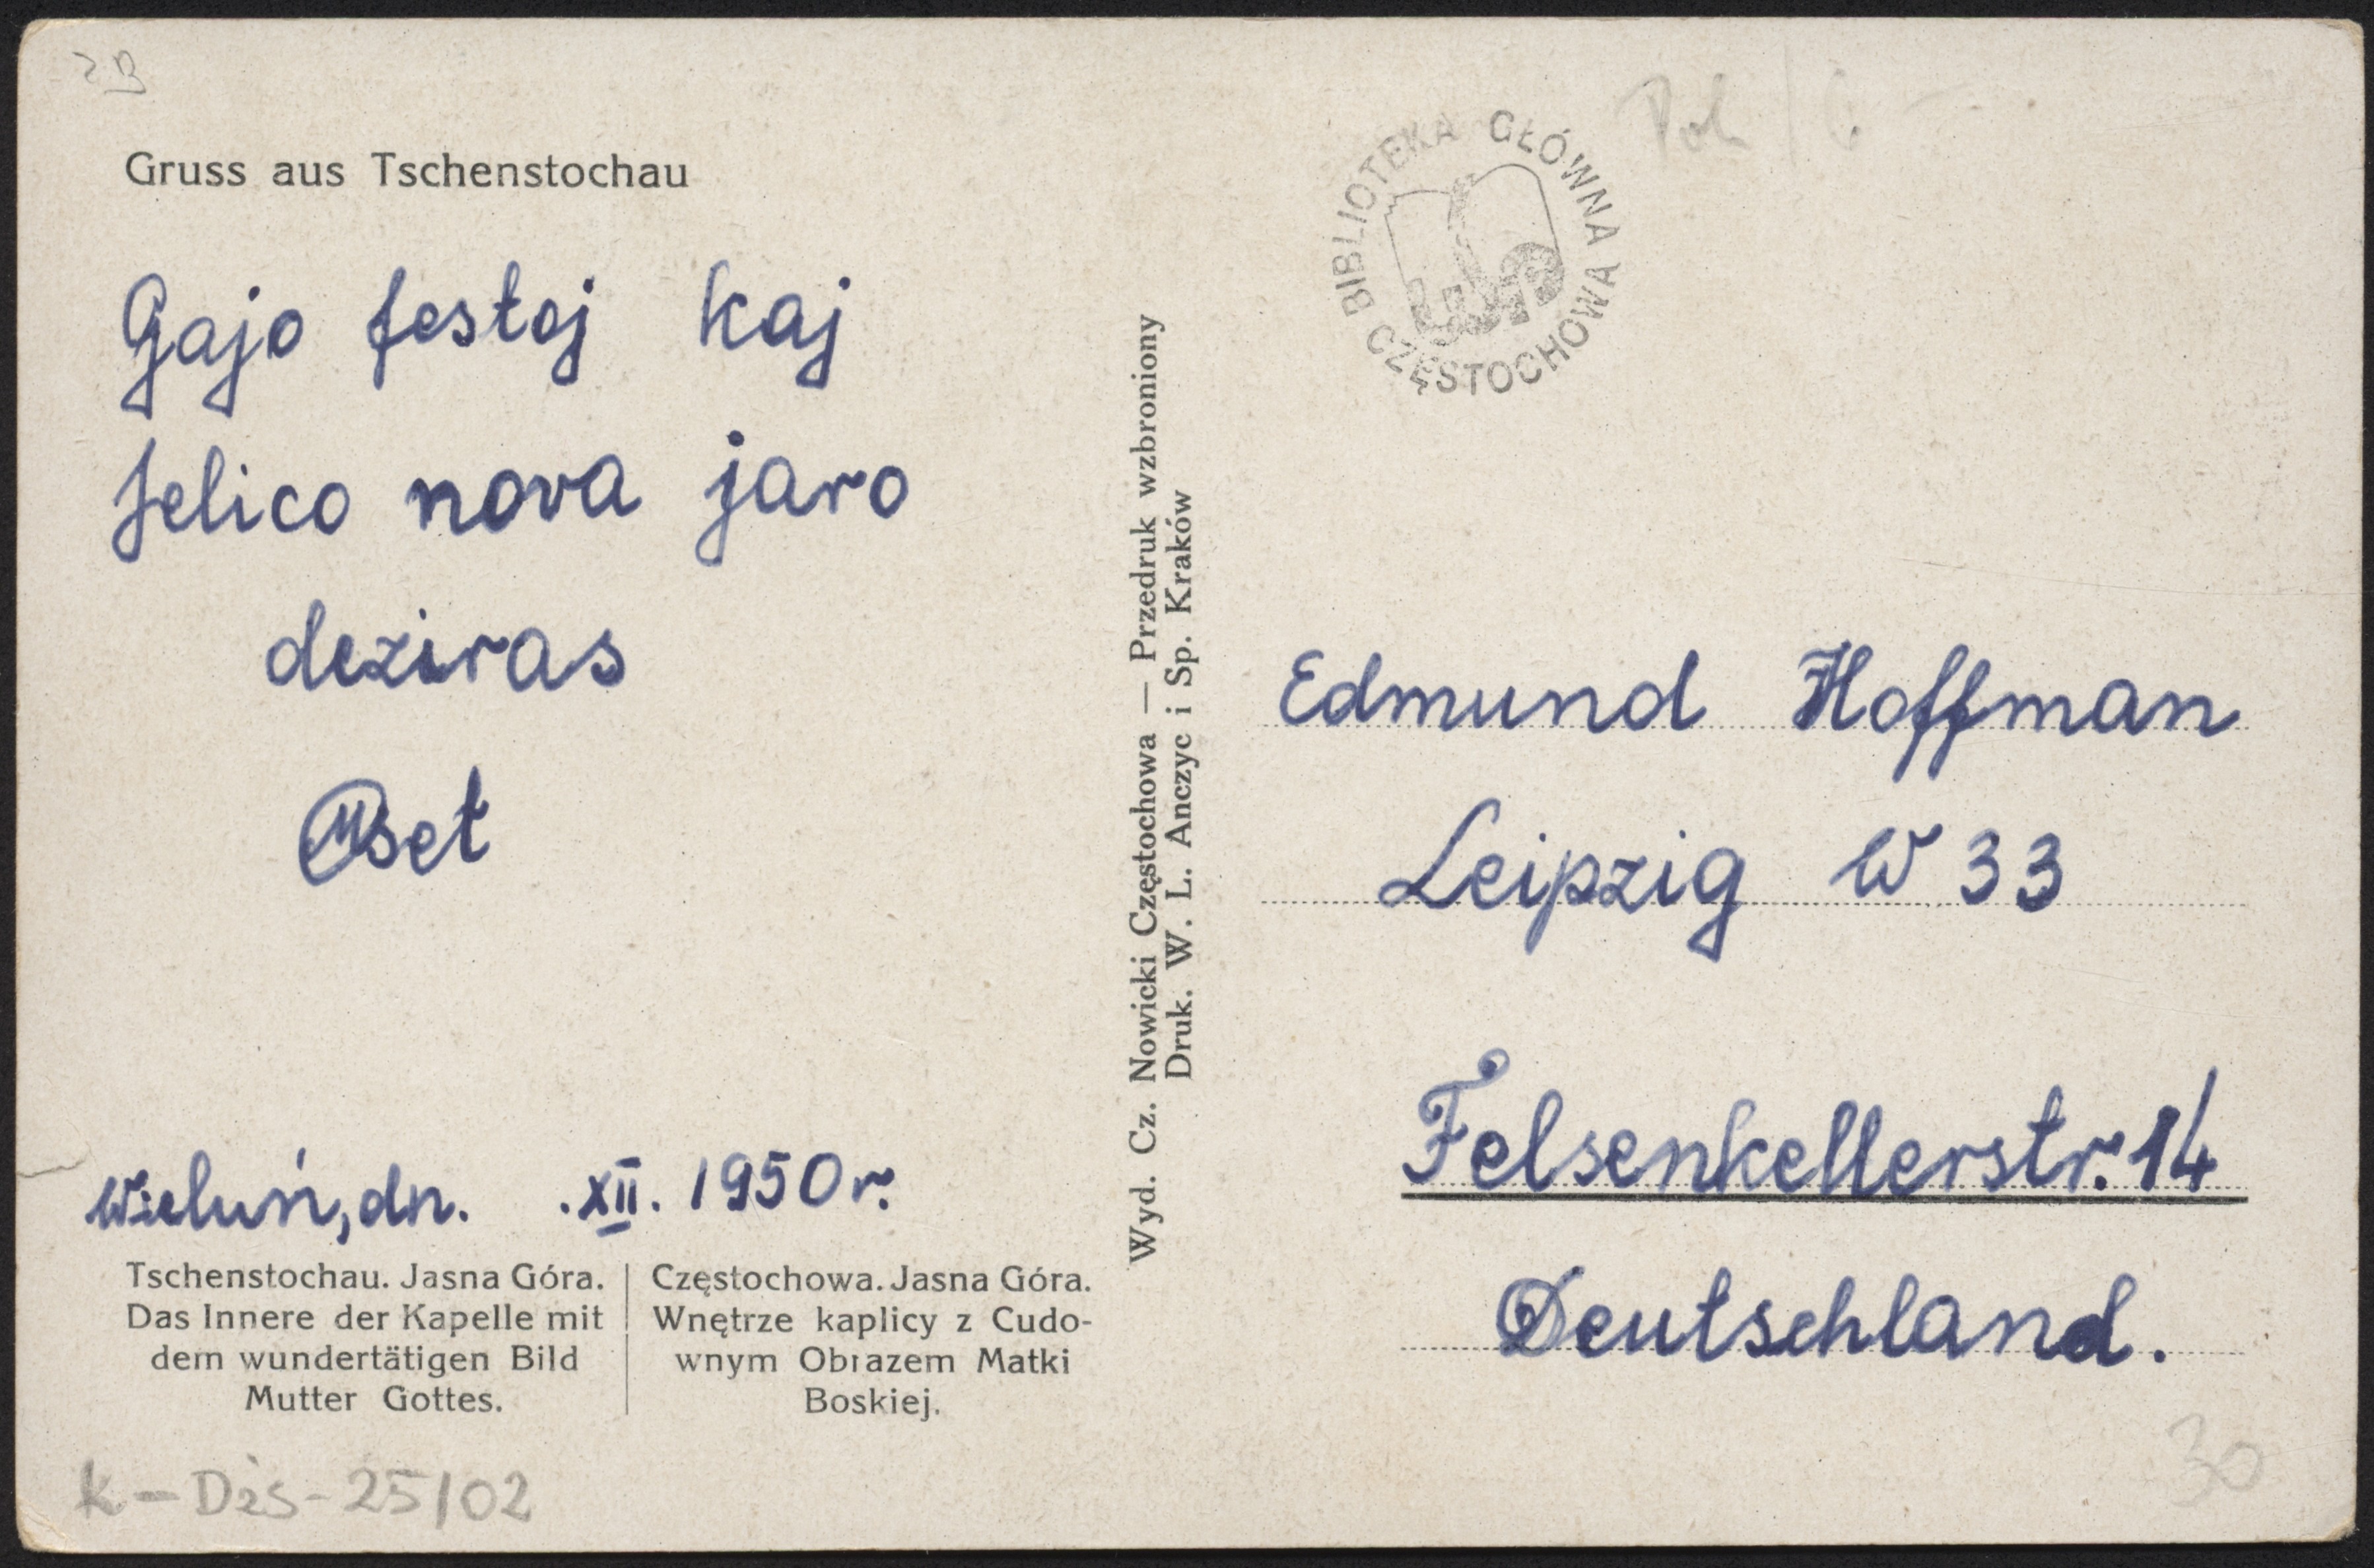 Gruss aus Tschenstochau
Gajo festoj kaj
felico nova jaro
deziras
Wieluń, dn. .XII. 1950 r.
Tschenstochau. Jasna Góra.
Das Innere der Kapelle mit
dem wundertätigen Bild
Mutter Gottes.
Częstochowa. Jasna Góra.
Wnętrze kaplicy z Cudo-
wnym Obrazem Matki
Boskiej.
K-Dżs-25/02
Wyd. Cz. Nowicki Częstochowa — Przedruk wzbroniony
Druk. W. L. Anczyc i Sp. Kraków
BIBLIOTEKA GŁÓWNA
CZĘSTOCHOWA
Edmund Hoffman
Leipzig W 33
Felsenkellerstr. 14
Deutschland.
30